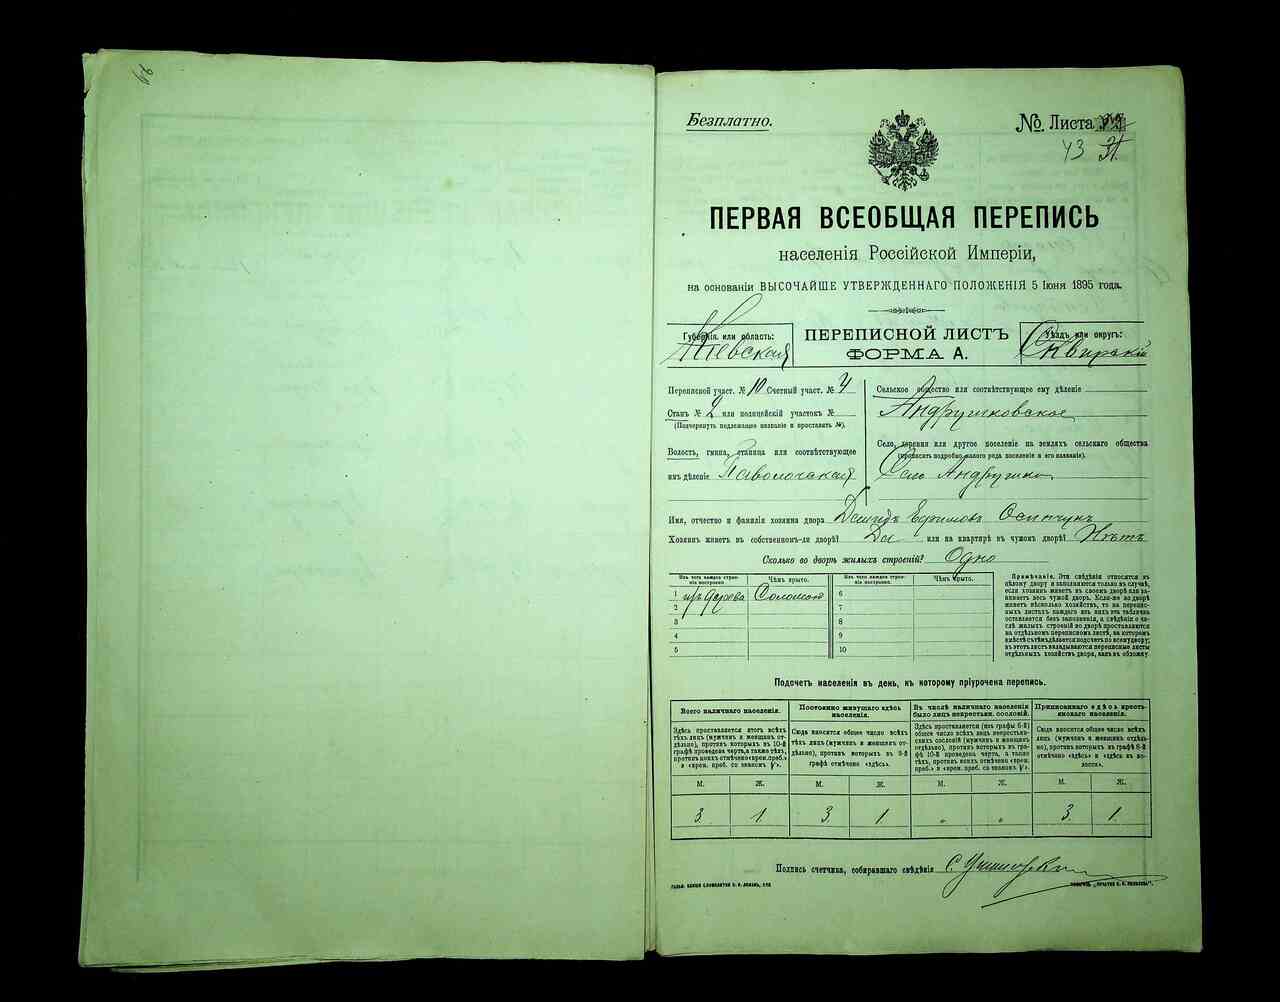 Безплатно.
№ Листа
43 31.
ПЕРВАЯ ВСЕОБЩАЯ ПЕРЕПИСЬ
населенія Россійской Имперіи,
на основаніи ВЫСОЧАЙШЕ УТВЕРЖДЕННАГО ПОЛОЖЕНІЯ 5 Іюня 1895 года.
Губернія или область:
Кіевская
ПЕРЕПИСНОЙ ЛИСТЪ
ФОРМА А.
Уѣздъ или округъ:
Сквирскій
Переписной участ. № 10 Счетный участ. № 4
Станъ № 2 или полицейскій участокъ №
(Подчеркнуть подлежащее названіе и проставить №).
Волость, гмина, станица или соотвѣтствующее
имъ дѣленіе Паволочская
Сельское общество или соотвѣтствующее ему дѣленіе
Андрушковское
Село, деревня или другое поселеніе на земляхъ сельскаго общества
(прописать подробно, какого рода поселеніе и его названіе).
Село Андрушки
Имя, отчество и фамилія хозяина двора Демидъ Ефимовъ Осипчукъ
Хозяинъ живетъ въ собственномъ-ли дворѣ? Да или на квартирѣ въ чужомъ дворѣ? Нѣтъ
Сколько во дворѣ жилыхъ строеній? Одно
Изъ чего каждое строе-
ніе построено.
Чѣмъ крыто.
Изъ чего каждое строе-
ніе построено.
Чѣмъ крыто.
1 изъ дерева Соломою 6
2 7
3 8
4 9
5 10
Примѣчаніе. Эти свѣдѣнія относятся къ
цѣлому двору и заполняются только въ случаѣ,
если хозяинъ живетъ въ своемъ дворѣ или за-
нимаетъ весь чужой дворъ. Если-же во дворѣ
живетъ нѣсколько хозяйствъ, то на перепис-
ныхъ листахъ каждаго изъ нихъ эта табличка
оставляется безъ заполненія, а свѣдѣнія о чи-
слѣ жилыхъ строеній во дворѣ проставляются
на отдѣльномъ переписномъ листѣ, на которомъ
вмѣстѣ съ тѣмъ дѣлается подсчетъ по всему двору;
въ этотъ листъ вкладываются переписные листы
отдѣльныхъ хозяйствъ двора, какъ въ обложку.
Подсчетъ населенія въ день, къ которому пріурочена перепись.
Всего наличнаго населенія.
Здѣсь проставляется итогъ всѣхъ
тѣхъ лицъ (мужчинъ и женщинъ от-
дѣльно), противъ которыхъ въ 10-й
графѣ проведена черта, а также тѣхъ,
противъ коихъ отмѣчено «врем. преб.»
и «врем. преб. со знакомъ V».
Постоянно живущаго здѣсь
населенія.
Сюда вносится общее число всѣхъ
тѣхъ лицъ (мужчинъ и женщинъ от-
дѣльно), противъ которыхъ въ 9-й
графѣ отмѣчено «здѣсь».
Въ числѣ наличнаго населенія
было лицъ некрестьян. сословій.
Здѣсь проставляется (изъ графы 6-й)
общее число всѣхъ лицъ некрестьян-
скихъ сословій (мужчинъ и женщинъ
отдѣльно), противъ которыхъ въ гра-
фѣ 10-й проведена черта, а также
тѣхъ, противъ коихъ отмѣчено «врем.
преб.» и «врем. преб. со знакомъ V».
Приписаннаго здѣсь кресть-
янскаго населенія.
Сюда вносится общее число всѣхъ
лицъ (мужчинъ и женщинъ отдѣль-
но), противъ которыхъ въ графѣ 8-й
отмѣчено «здѣсь» и «здѣсь въ во-
лости».
М. Ж. М. Ж. М. Ж. М. Ж.
3. 1. 3 1 „ „ 3. 1.
Подпись счетчика, собиравшаго свѣдѣнія